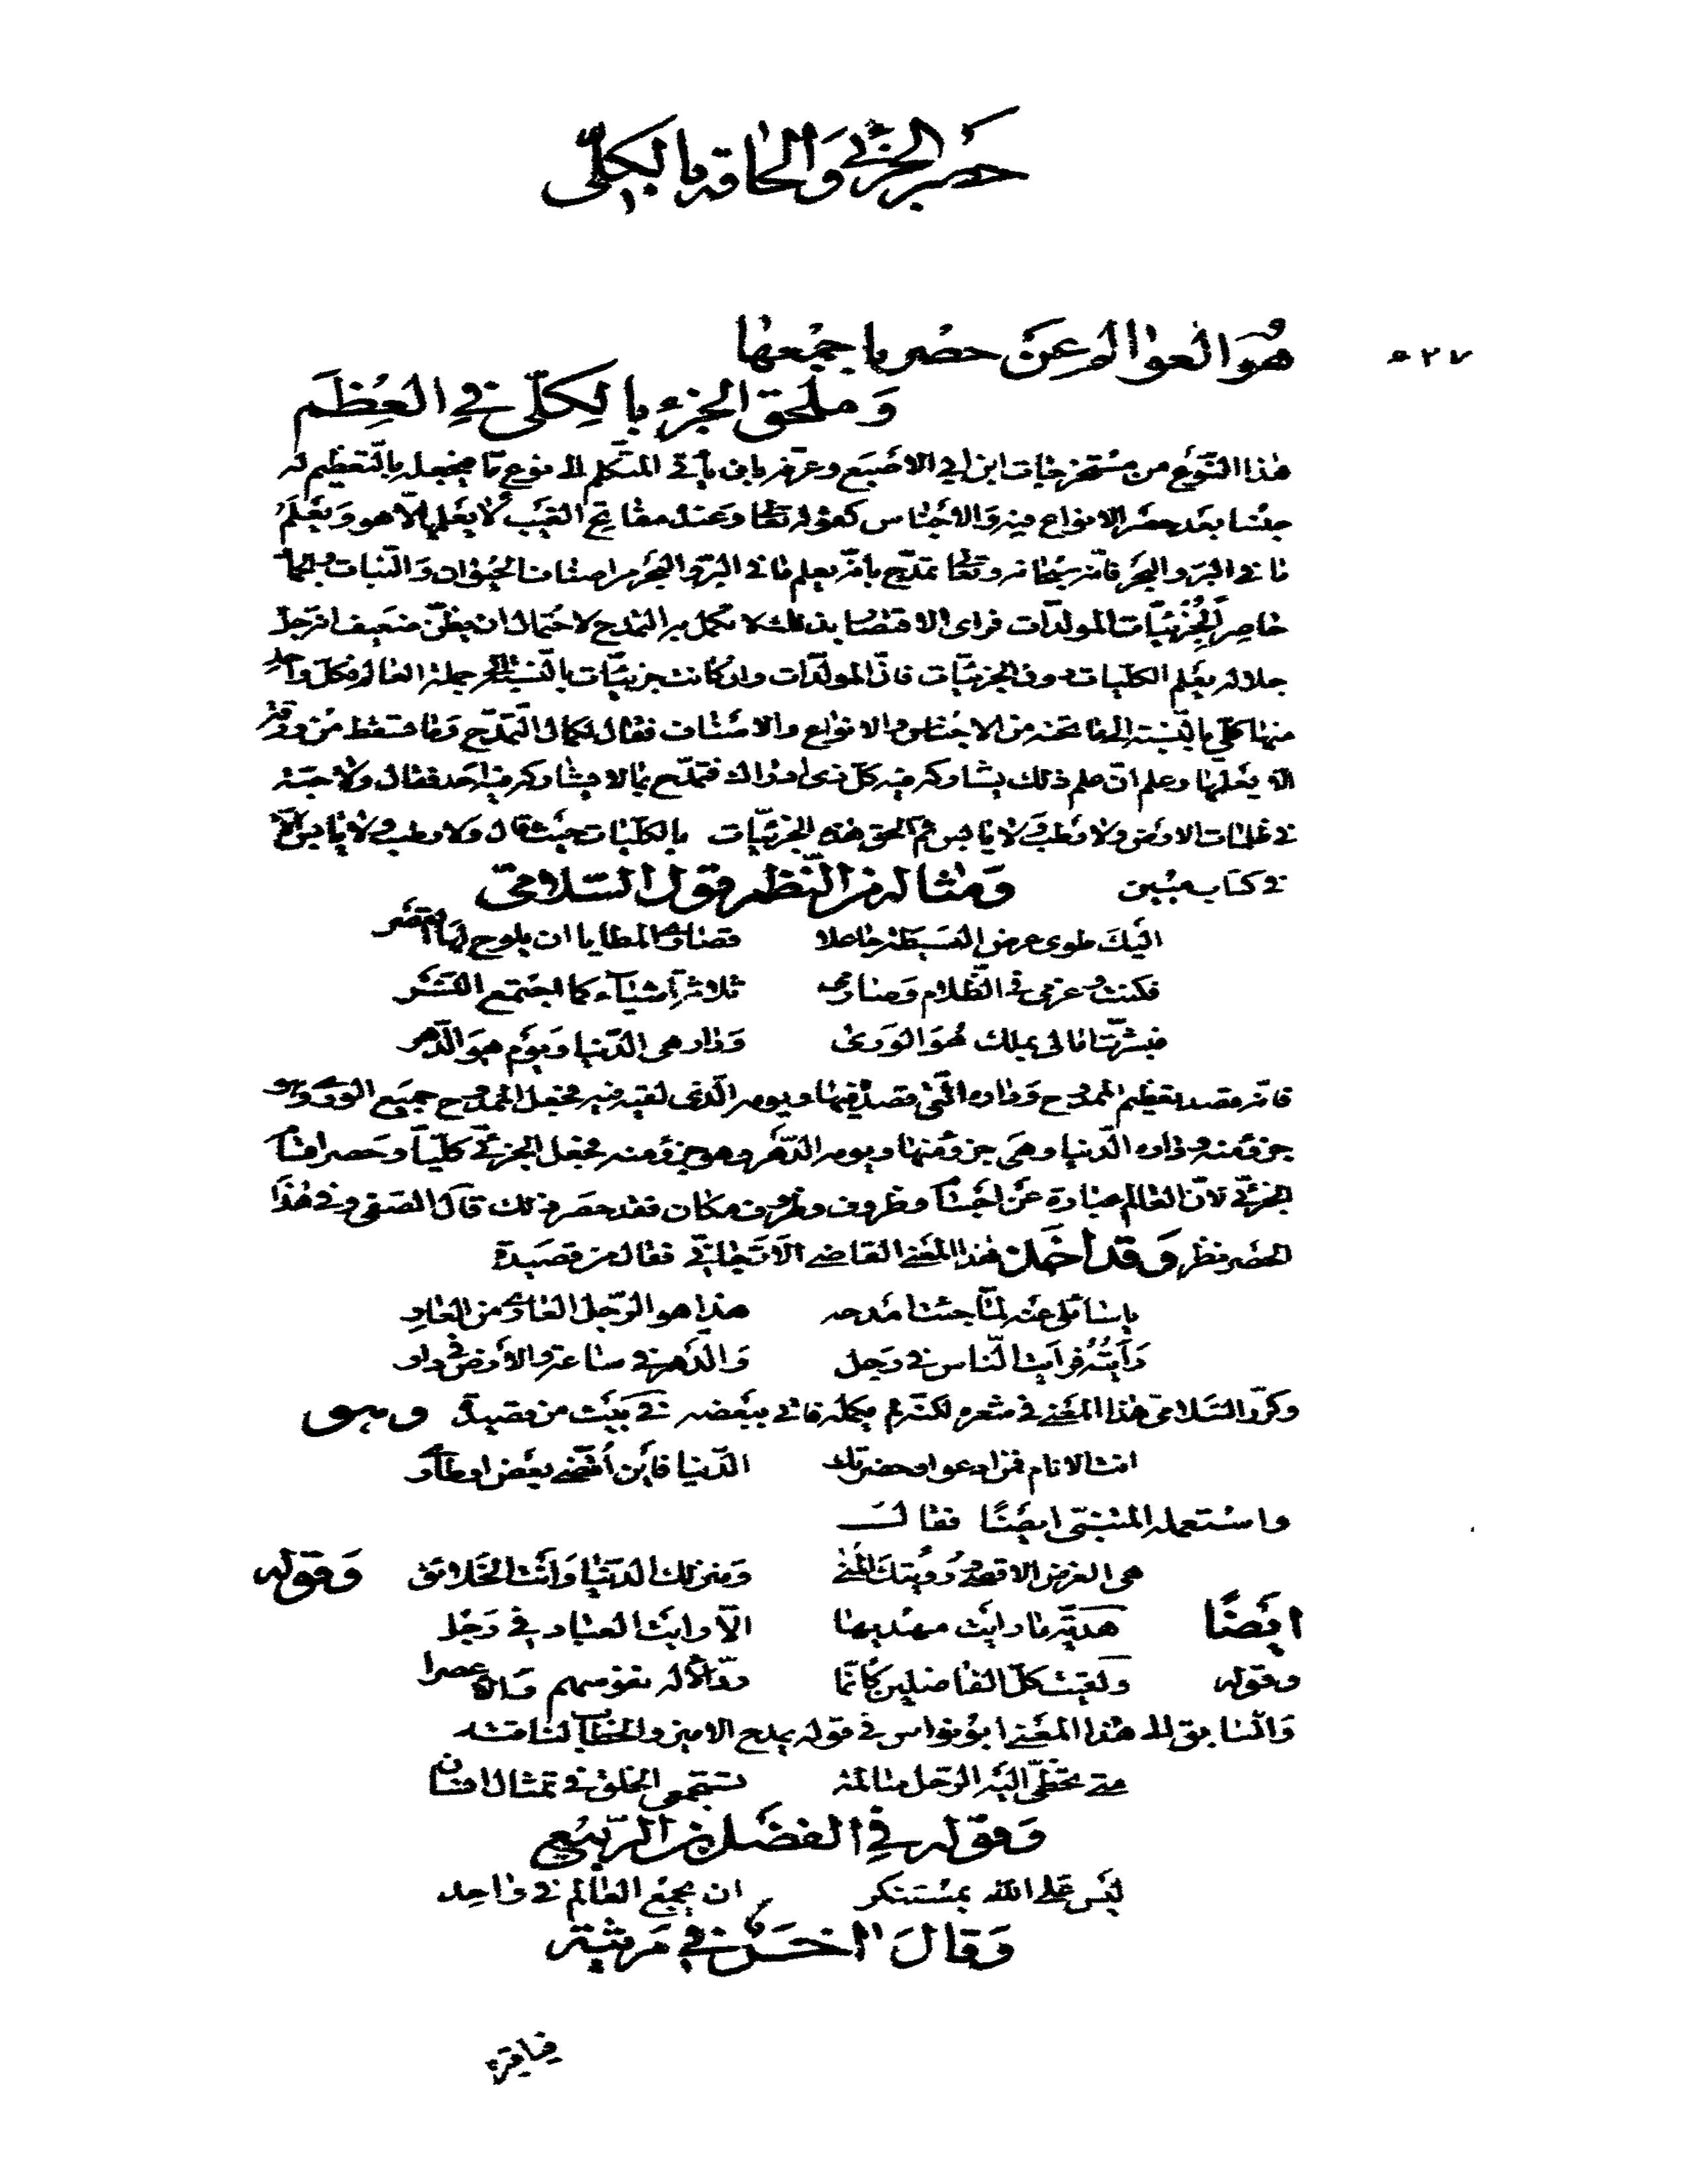 حصر الجزئي والحاقه بالكلي
٥٢٧
هو العوالم عن حصر باجمعها
وملحق الجزء بالكلي في العظم
هذا النوع من مستخرجات ابن ابي الاصبع وعرفه بان يأتي المتكلم الى نوع ما فيجعله بالتعظيم له
جنسا بعد حصر الانواع فيه والاجناس كقوله تعالى وعنده مفاتح الغيب لا يعلمها الا هو ويعلم
ما في البر والبحر فانه سبحانه وتعالى تمدح بانه يعلم ما في البر والبحر من اصناف الحيوان والنبات
حاصر الجزئيات المولدات فراى الاقتصار بذلك لا يكمل به التمدح لاحتمال ان يظن ضعيف انه جل
جلاله يعلم الكليات دون الجزئيات فان المولدات وان كانت جزئيات بالنسبة الى جملة العالم فكل واحد
منها كلي بالنسبة الى ما تحته من الاجناس والانواع والاصناف فقال لكمال التمدح وما تسقط من ورقة
الا يعلمها وعلم ان علم ذلك يشاركه فيه كل ذى ادراك فتمدح بما لا يشاركه فيه احد فقال ولا حبة
في ظلمات الارض ولا رطب ولا يابس ثم الحق هذه الجزئيات بالكليات حيث قال ولا رطب ولا يابس الا
في كتاب مبين ومثاله من النظم قول السلامي
اليك طوى عرض البسيطة جاعلا قصارى المطايا ان يلوح لها القصر
فكنت وعزمي في الظلام وصارمي ثلاثة اشياء كما اجتمع النسر
فبشرت امالى بملك هو الورى ودار هي الدنيا ويوم هو الدهر
فانه قصد تعظيم الممدوح وداره التى قصده فيها ويومه الذى لقيه فيه فجعل الممدوح جميع الورى وهو
جزؤ منه وداره الدنيا وهى جزؤ منها ويومه الدهر وهو جزؤ منه فجعل الجزئي كليا وحصر اقسام
الجزئي لان العالم عبارة عن اجسام وظروف زمان وظروف مكان فقد حصر ذلك قال الصفى وفي هذا
الحصر نظر وقد اخذ هذا المعنى القاضي الارجاني فقال من قصيدة
يا سائلى عنه لما جئت امدحه هذا هو الرجل العارى من العار
رأيته فرأيت الناس في رجل والدهر في ساعة والارض في دار
وكرر السلامى هذا المعنى في شعره لكنه لم يكمله فاتى ببعضه في بيت من قصيدة وهو
الدنيا فاين أقضي بعض اوطار
واستعمله المتنبي ايضا فقال
هى الغرض الاقصى ورؤيتك المنى ومنزلك الدنيا وانت الخلائق وقوله
ايضا هدية ما رايت مهديها الا رايت العباد في رجل
وقوله ولقيت كل الفاضلين كأنما رد الاله نفوسهم والاعصرا
والسابق الى هذا المعنى ابو نواس في قوله يمدح الامين والخطاب لناقته
متى تحطى اليه الرحل سالمة تستجمعى الخلق في تمثال انسان
وقوله في الفضل بن الربيع
ليس على الله بمستنكر ان يجمع العالم في واحد
وقال اخر في مرثية